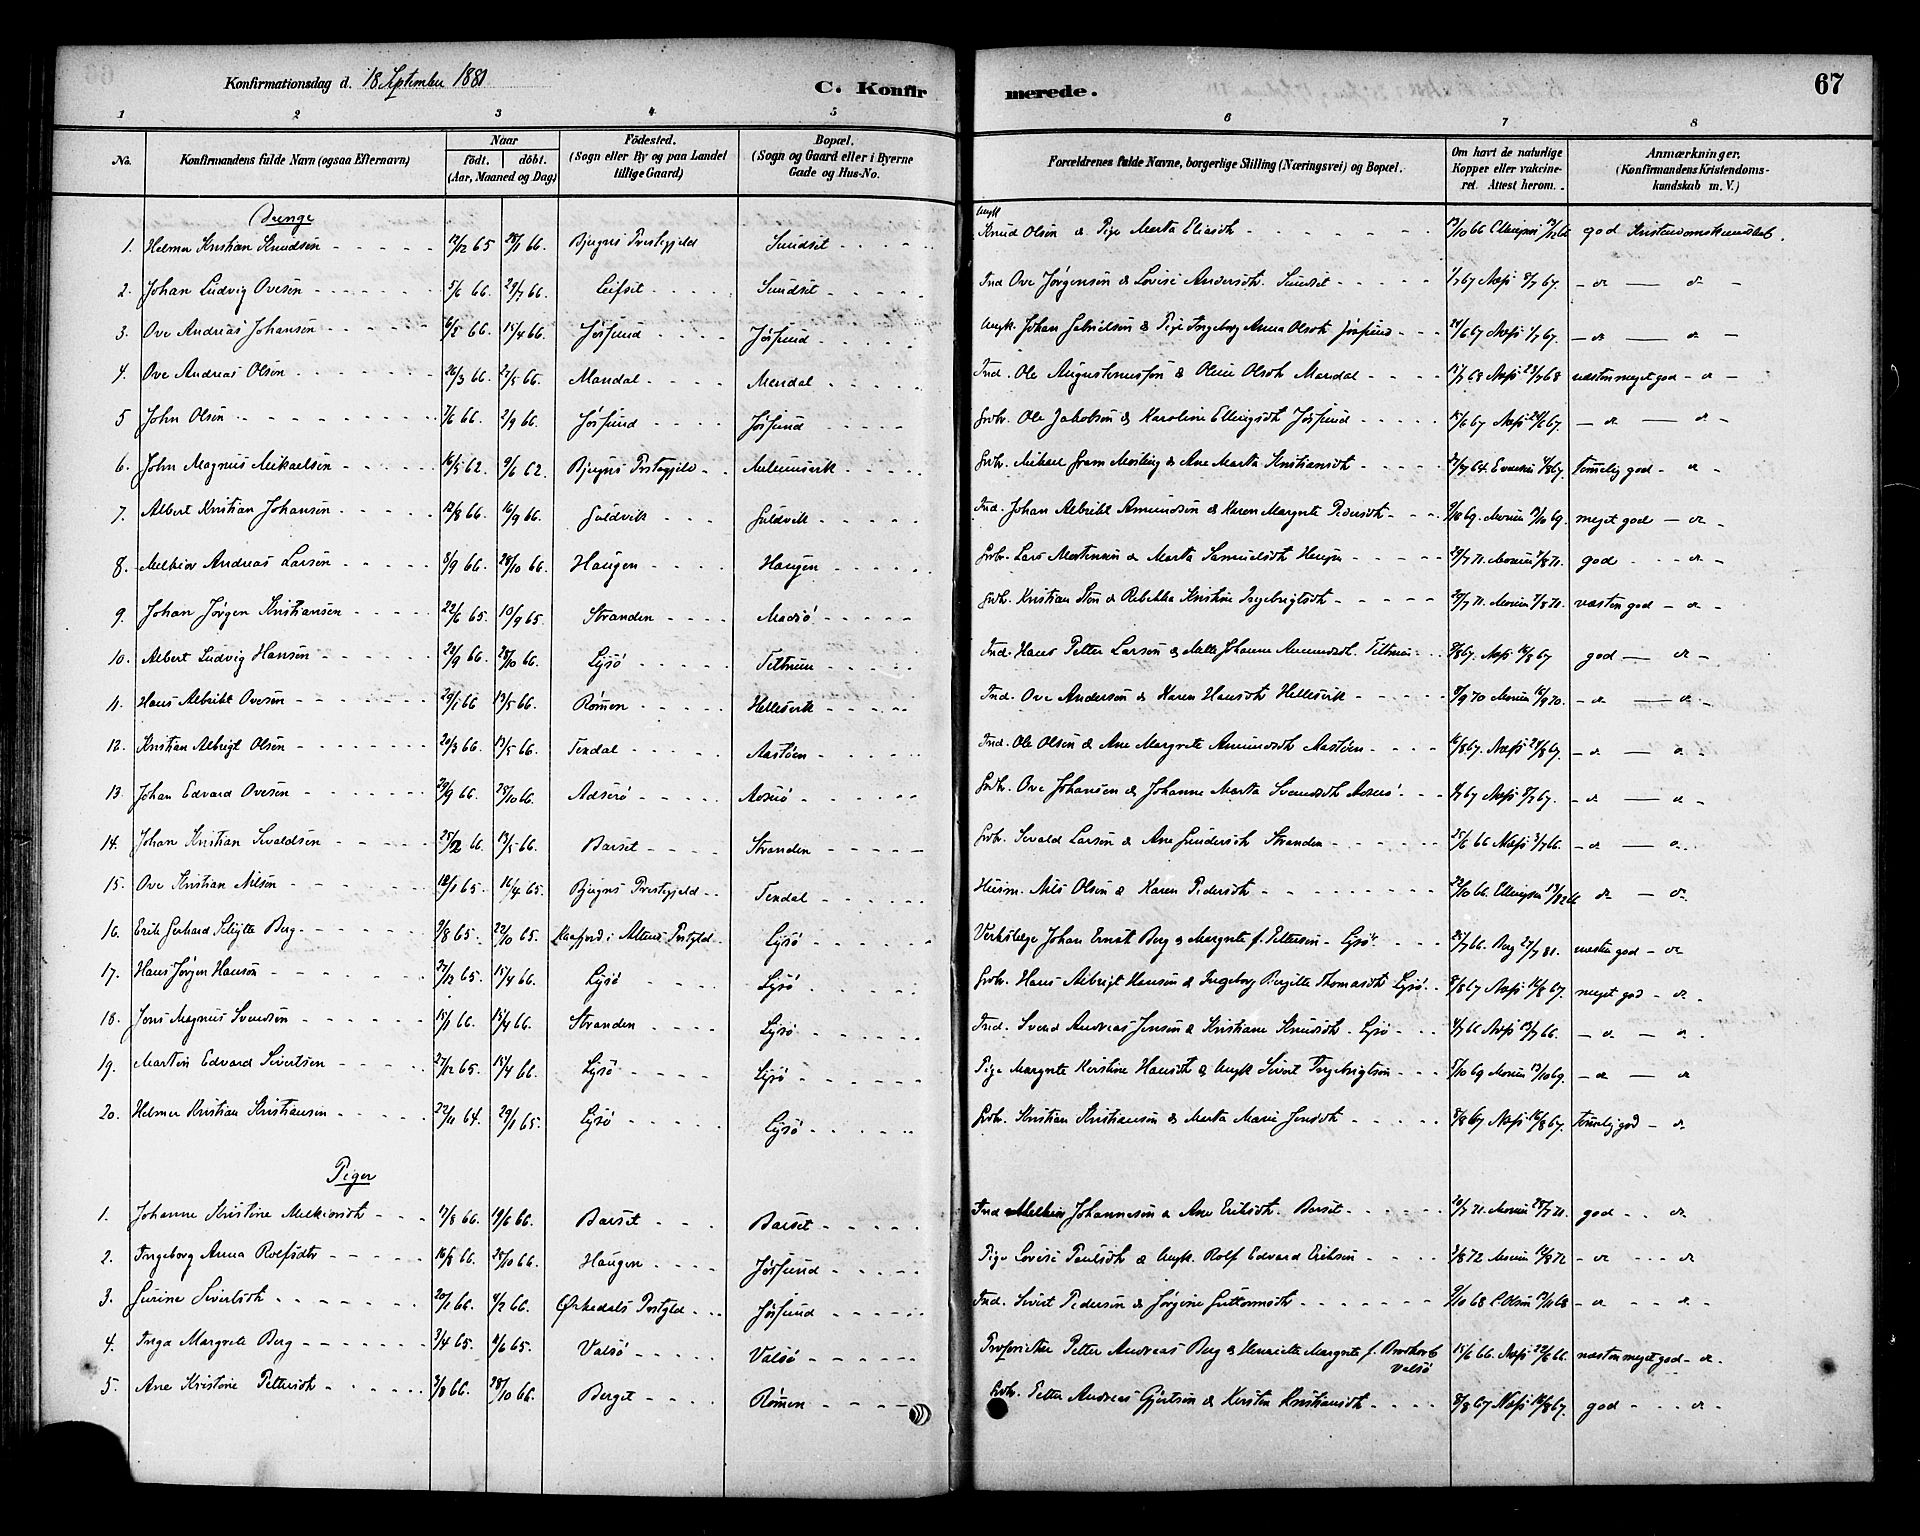 Konfirmationsdag d. 18 September 1881
C. Konfirmerede.
67
1 2 3 4 5 6 7 8
No.
Konfirmandens fulde Navn (ogsaa Efternavn)
Naar
født. døbt.
(Aar, Maaned og Dag)
Födested.
(Sogn eller By og paa Landet
tillige Gaard)
Bopæl.
(Sogn og Gaard eller i Byerne
Gade og Hus-No.
Forældrenes fulde Navne, borgerlige Stilling (Næringsvei) og Bopæl.
Om havt de naturlige
Kopper eller vakcine-
ret. Attest herom.
Anmærkninger.
(Konfirmandens Kristendoms-
kundskab m. V.)
Drenge
1. Helmer Kristian Knudsen 12/12 65 28/1 66. Bjugns Prestegjeld Sundset Ungk Knud Olsen & Pige Marta Eliasdt god Kristendomskundskab.
2. Johan Ludvig Ovesen 5/6 66. 29/7 66. Leifset Sundset Ind Ove Jørgensen & Lovise Andersdt. Sundset 1/7 67 Næss 8/7 67. - do - do -
3. Ove Andreas Johansen 6/2 66. 15/4 66. Jøssund Jøssund Ungk. Johan Gabrielsen & Pige Ingeborg Anna Olsdt Jøssund 24/6 67 Næss 1/7 67. - do - do -
4. Ove Andreas Olsen 26/3 66. 27/5 66. Mandal Mendal Ind. Ole Augustinussen & Oline Olsdt Mandal 18/7 68 Næss 23/7 68 næsten meget god - do -
5 John Olsen 7/6 66. 2/9 66. Jøssund Jøssund Grdbr. Ole Jakobsen & Karoline Ellingsdt Jøssund 18/6 67 Næss 24/6 67. - do - do -
6. John Magnus Mikaelsen 16/5 62. 9/6 62. Bjugns Prstegjeld Grdbr. Mikael Gram Mosling & Ane Marta Kristiansdt temelig god - do -
7. Albert Kristian Johansen 12/8 66. 16/9 66. Guldvik Guldvik Ind. Johan Albrikt Amundsen & Karen Margrete Pedersdt meget god - do -
8. Melkior Andreas Larsen 8/9 66. 28/10 66. Haugen Haugen Grdbr. Lars Mortensen & Marta Samuelsdt Haugen god - do -
9. Johan Jørgen Kristiansen 22/6 65. 10/9 65. Stranden Madsø Grdbr. Kristian Sten & Rebekka Kristine Ingebrigtsdt næsten god - do -
10. Albert Ludvig Hansen 20/9 66. 28/10 66. Lysø Tettnum Ind. Hans Petter Larsen & Mette Johanna Amundsdt. Tettnum god - do -
11. Hans Albrikt Ovesen 29/1 66 13/5 66. Rømen Hellesvik Ind. Ove Andersen & Karen Hansdt Hellesvik - do - do -
12. Kristian Albrigt Olsen 20/3 66. 13/5 66. Tendal Aastøen Ind. Ole Olsen & Ane Margrete Amundsdt Aastøen - do - do -
13. Johan Edvard Ovesen 29/9 66. 28/10 66. Adserø Grdbr. Ove Johansen & Johanne Marta Svendsdt - do - do -
14. Johan Kristian Sivaldsen 25/12 66. 13/5 66. Barset Stranden Grdbr. Sevald Larsen & Ane Gundersdt Stranden - do - do
15. Ove Kristian Nilsen 12/1 65. 16/4 65. Bjugns Prestegjeld Tendal Husm. Nils Olsen & Karen Pedersdt do - do
16. Erik Gerhard Schytte Berg 9/8 65. 22/10 65. Kaafjord i Altens Prstgjld Lysø Verkslæge Johan Ernst Berg & Margrete f. Petterson - Lysø 26/7 66. Berg 27/7 81. næsten god - do
17. Hans Jørgen Hansen 27/12 65. 15/4 66. Lysø Lysø Grdbr. Hans Albrigt Hansen & Ingeborg Bergitte Thomasdt Lysø 8/8 67 Næss 16/8 67. meget god - do
18. Jens Magnus Svendsen 15/1 66. 15/4 66. Stranden Lysø Ind. Svend Andreas Jensen & Kristiane Knudsdt. Lysø 4/7 66 Næss 13/7 66. - do - do
19. Martin Edvard Sivertsen 27/12 65. 15/4 66. Lysø Lysø Pige Margrete Kirstine Hansdt & Ungk Sivert Ingebrigtsen - do - do
20. Helmer Kristian Kristiansen 22/11 64. 29/1 65. Lysø Lysø Grdbr. Kristian Kristiansen & Marta Marie Jensdt 8/8 67 Næss 16/8 67. temelig god - do
Piger
1. Johanne Kristine Melkiorsdt 17/5 66. 19/6 66. Barset Barset Ind Melkior Johannesen & Ane Eriksdt. Barset god - do
2. Ingeborg Anna Rolfsdtr 16/8 66. 28/10 66. Haugen Jøssund Pige Lovise Paulsdt & Ungk. Rolf Edvard Eriksen - do - do
3. Gurine Sivertsdt 20/1 66. 4/2 66. Ørkedals Prstgjld Jøssund Ind. Sivert Pedersen & Jørgine Guttormsdt - do - do
4. Inga Margrete Berg 3/4 65. 11/6 65. Valsø Valsø Petter Andreas Berg & Henriette Margrete f. Brodkorb Valsø 15/6 66. Næss 22/6 66. næsten meget god - do
5. Ane Kristine Pettersdt 3/8 66. 28/10 66. Berget Rømen Grdbr. Petter Andreas Gjertsen & Kirsten Kristiansdt 8/8 67 Næss 16/8 67. god - do